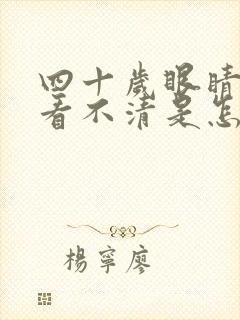 四十歲眼睛
看不清是怎
楊寧廖